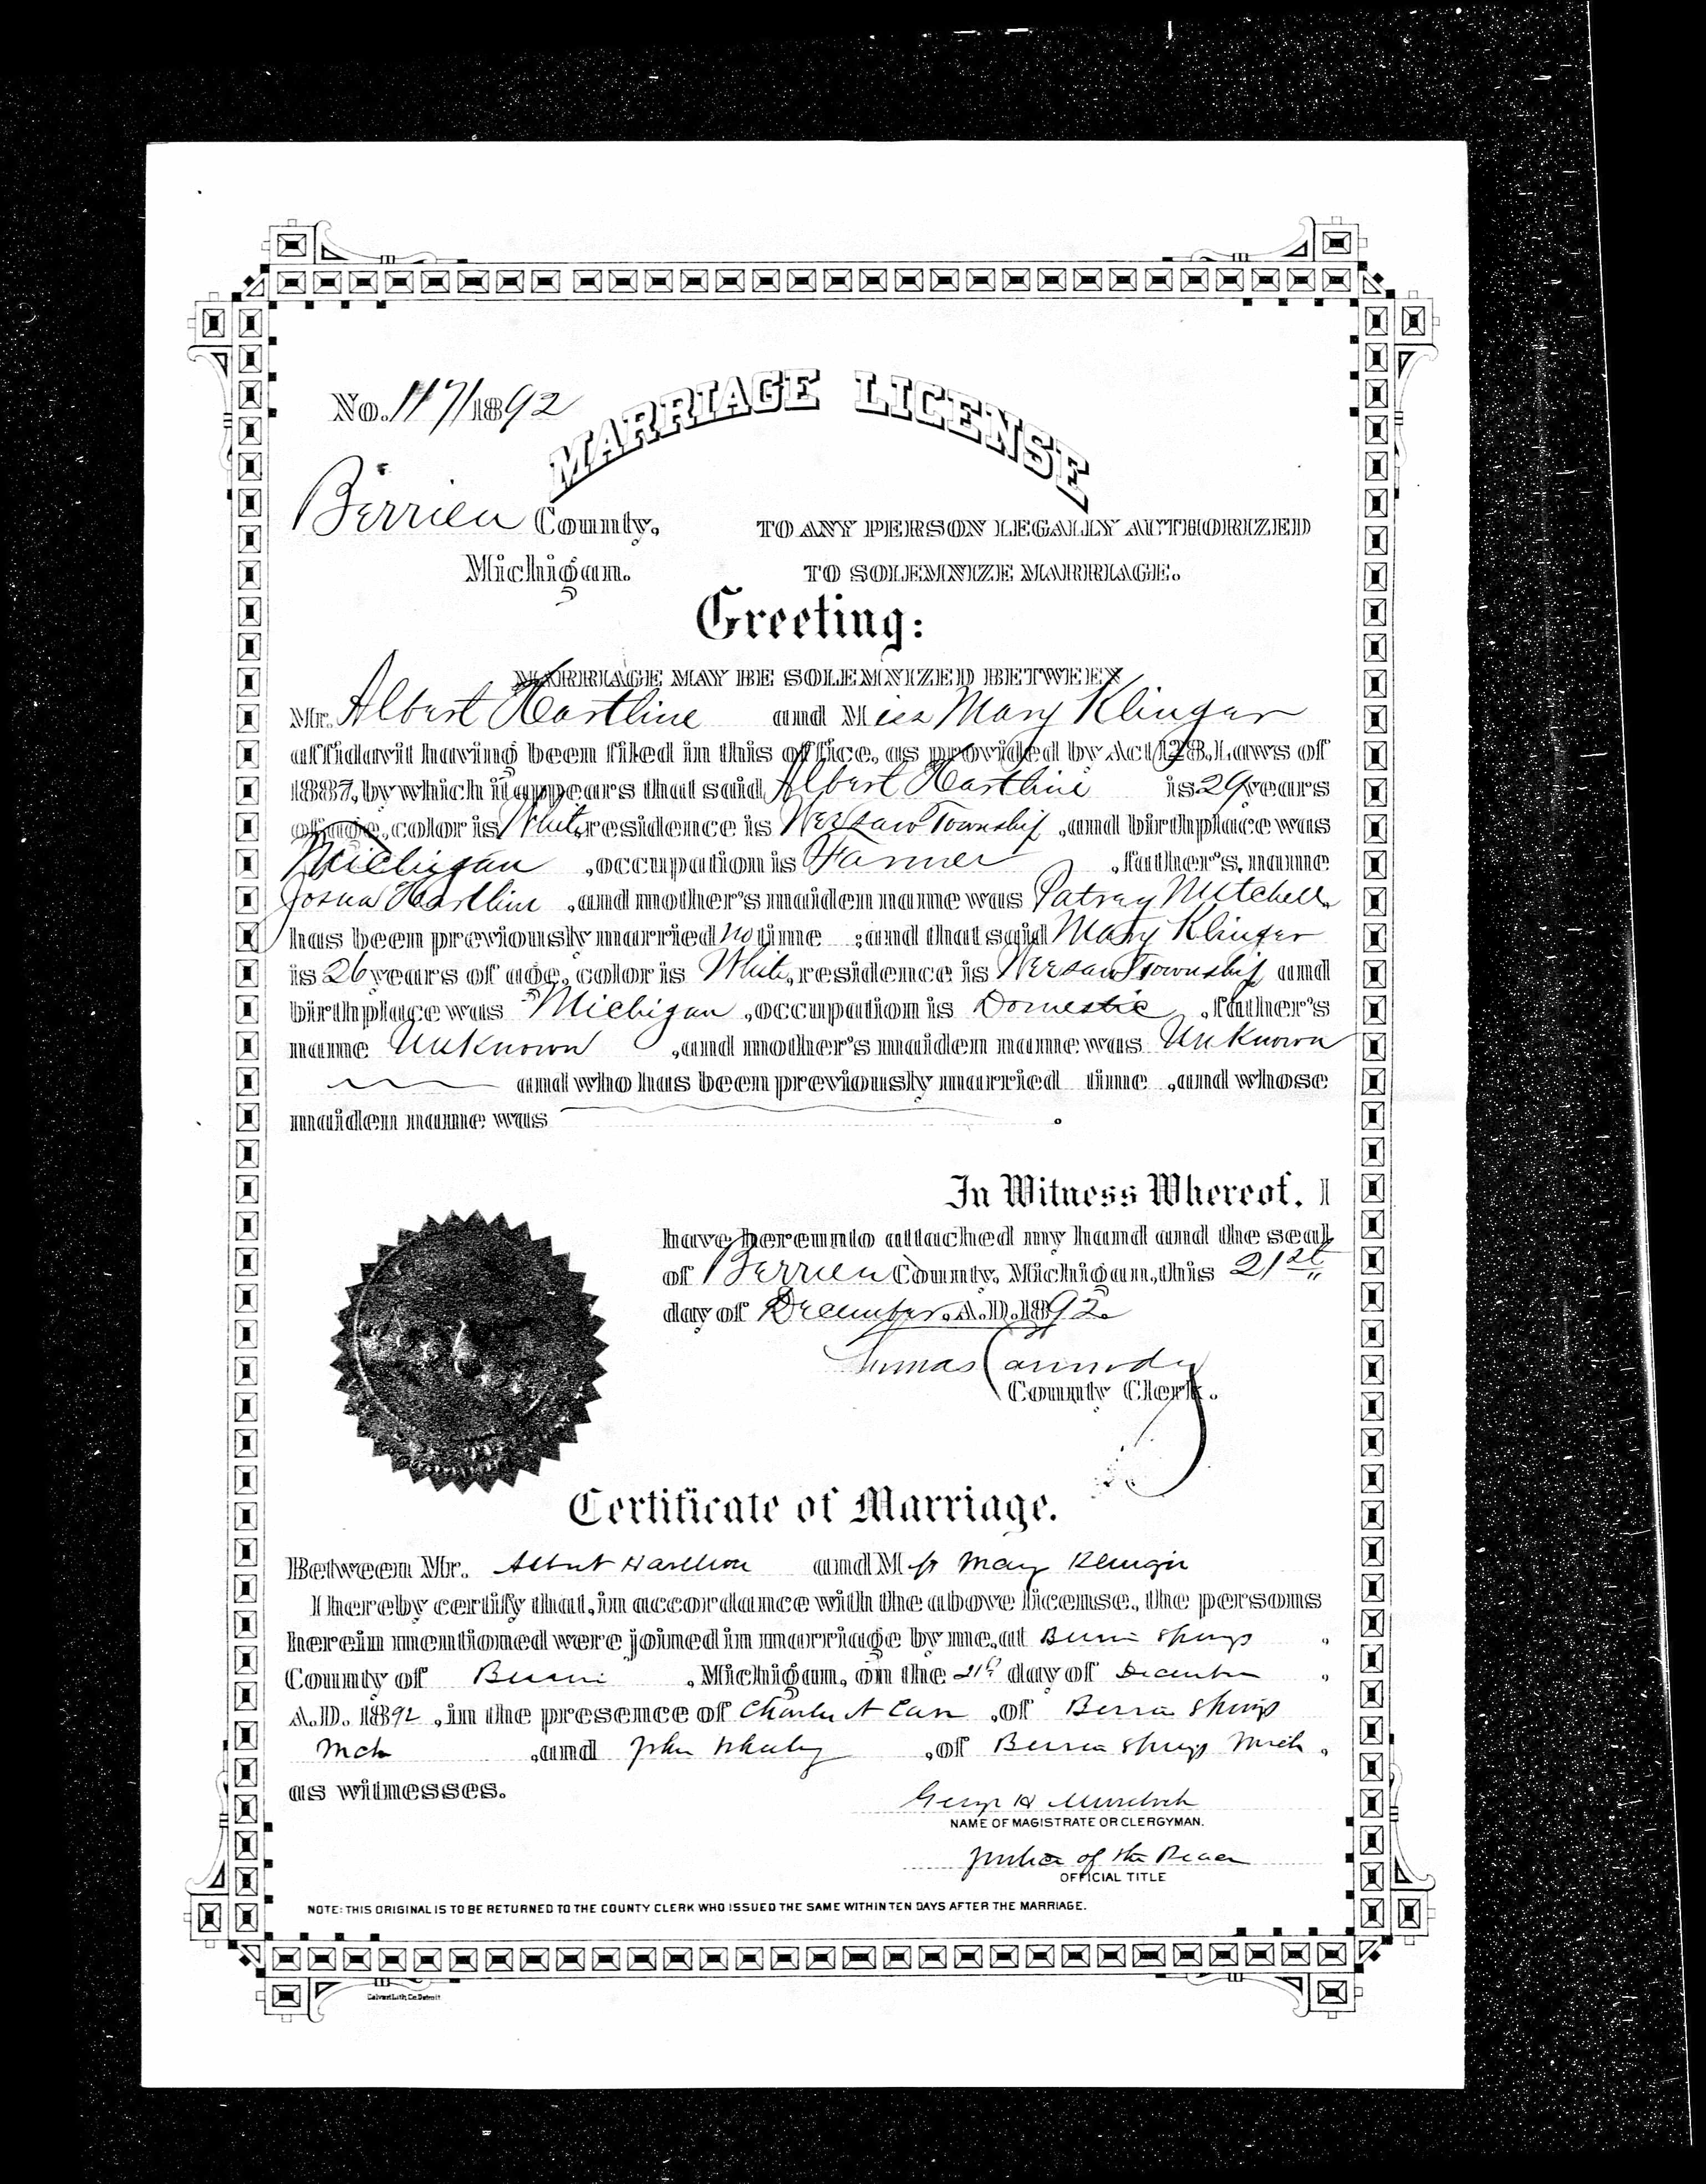 No. 117/1892
MARRIAGE LICENSE
Berrien County,
TO ANY PERSON LEGALLY AUTHORIZED
Michigan.
TO SOLEMNIZE MARRIAGE.
Greeting:
MARRIAGE MAY BE SOLEMNIZED BETWEEN
Mr. Albert Hartline and Miss Mary Klinger
affidavit having been filed in this office, as provided by Act 128, Laws of
1887, by which it appears that said Albert Hartline is 29 years
of age, color is White, residence is Township, and birthplace was
Michigan, occupation is Farmer, father's, name
Josua Hartline, and mother's maiden name was Mitchell,
has been previously married no time; and that said Mary Klinger
is 26 years of age, color is White, residence is Township and
birthplace was Michigan, occupation is Domestic, father's
name Unknown, and mother's maiden name was Unknown
and who has been previously married time, and whose
maiden name was .
In Witness Whereof, I
have hereunto attached my hand and the seal
of Berrien County, Michigan, this 21st
day of December A.D. 1892.
Carmody
County Clerk.
Certificate of Marriage.
Between Mr. Albert Hartline and Miss Mary Klinger
I hereby certify that, in accordance with the above license, the persons
herein mentioned were joined in marriage by me, at Berrien Springs,
County of Berrien, Michigan, on the 21st day of December,
A.D. 1892, in the presence of Charles A, of Berrien Springs
Mich, and John, of Berrien Springs Mich,
as witnesses.
George H Murdoch
NAME OF MAGISTRATE OR CLERGYMAN.
Justice of the Peace
OFFICIAL TITLE
NOTE: THIS ORIGINAL IS TO BE RETURNED TO THE COUNTY CLERK WHO ISSUED THE SAME WITHIN TEN DAYS AFTER THE MARRIAGE.
Calvert Lith. Co. Detroit